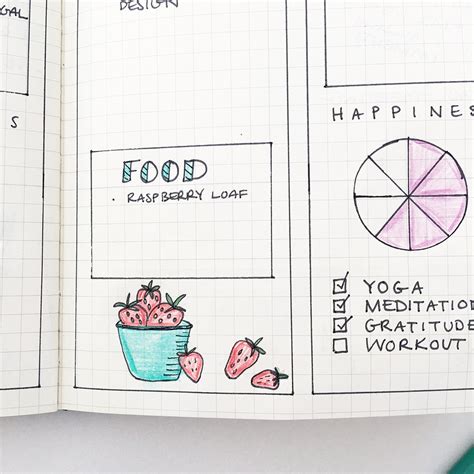 GAL
DESIGN
S
FOOD
· RASPBERRY LOAF
HAPPINES
YOGA
MEDITATION
GRATITUDE
WORKOUT